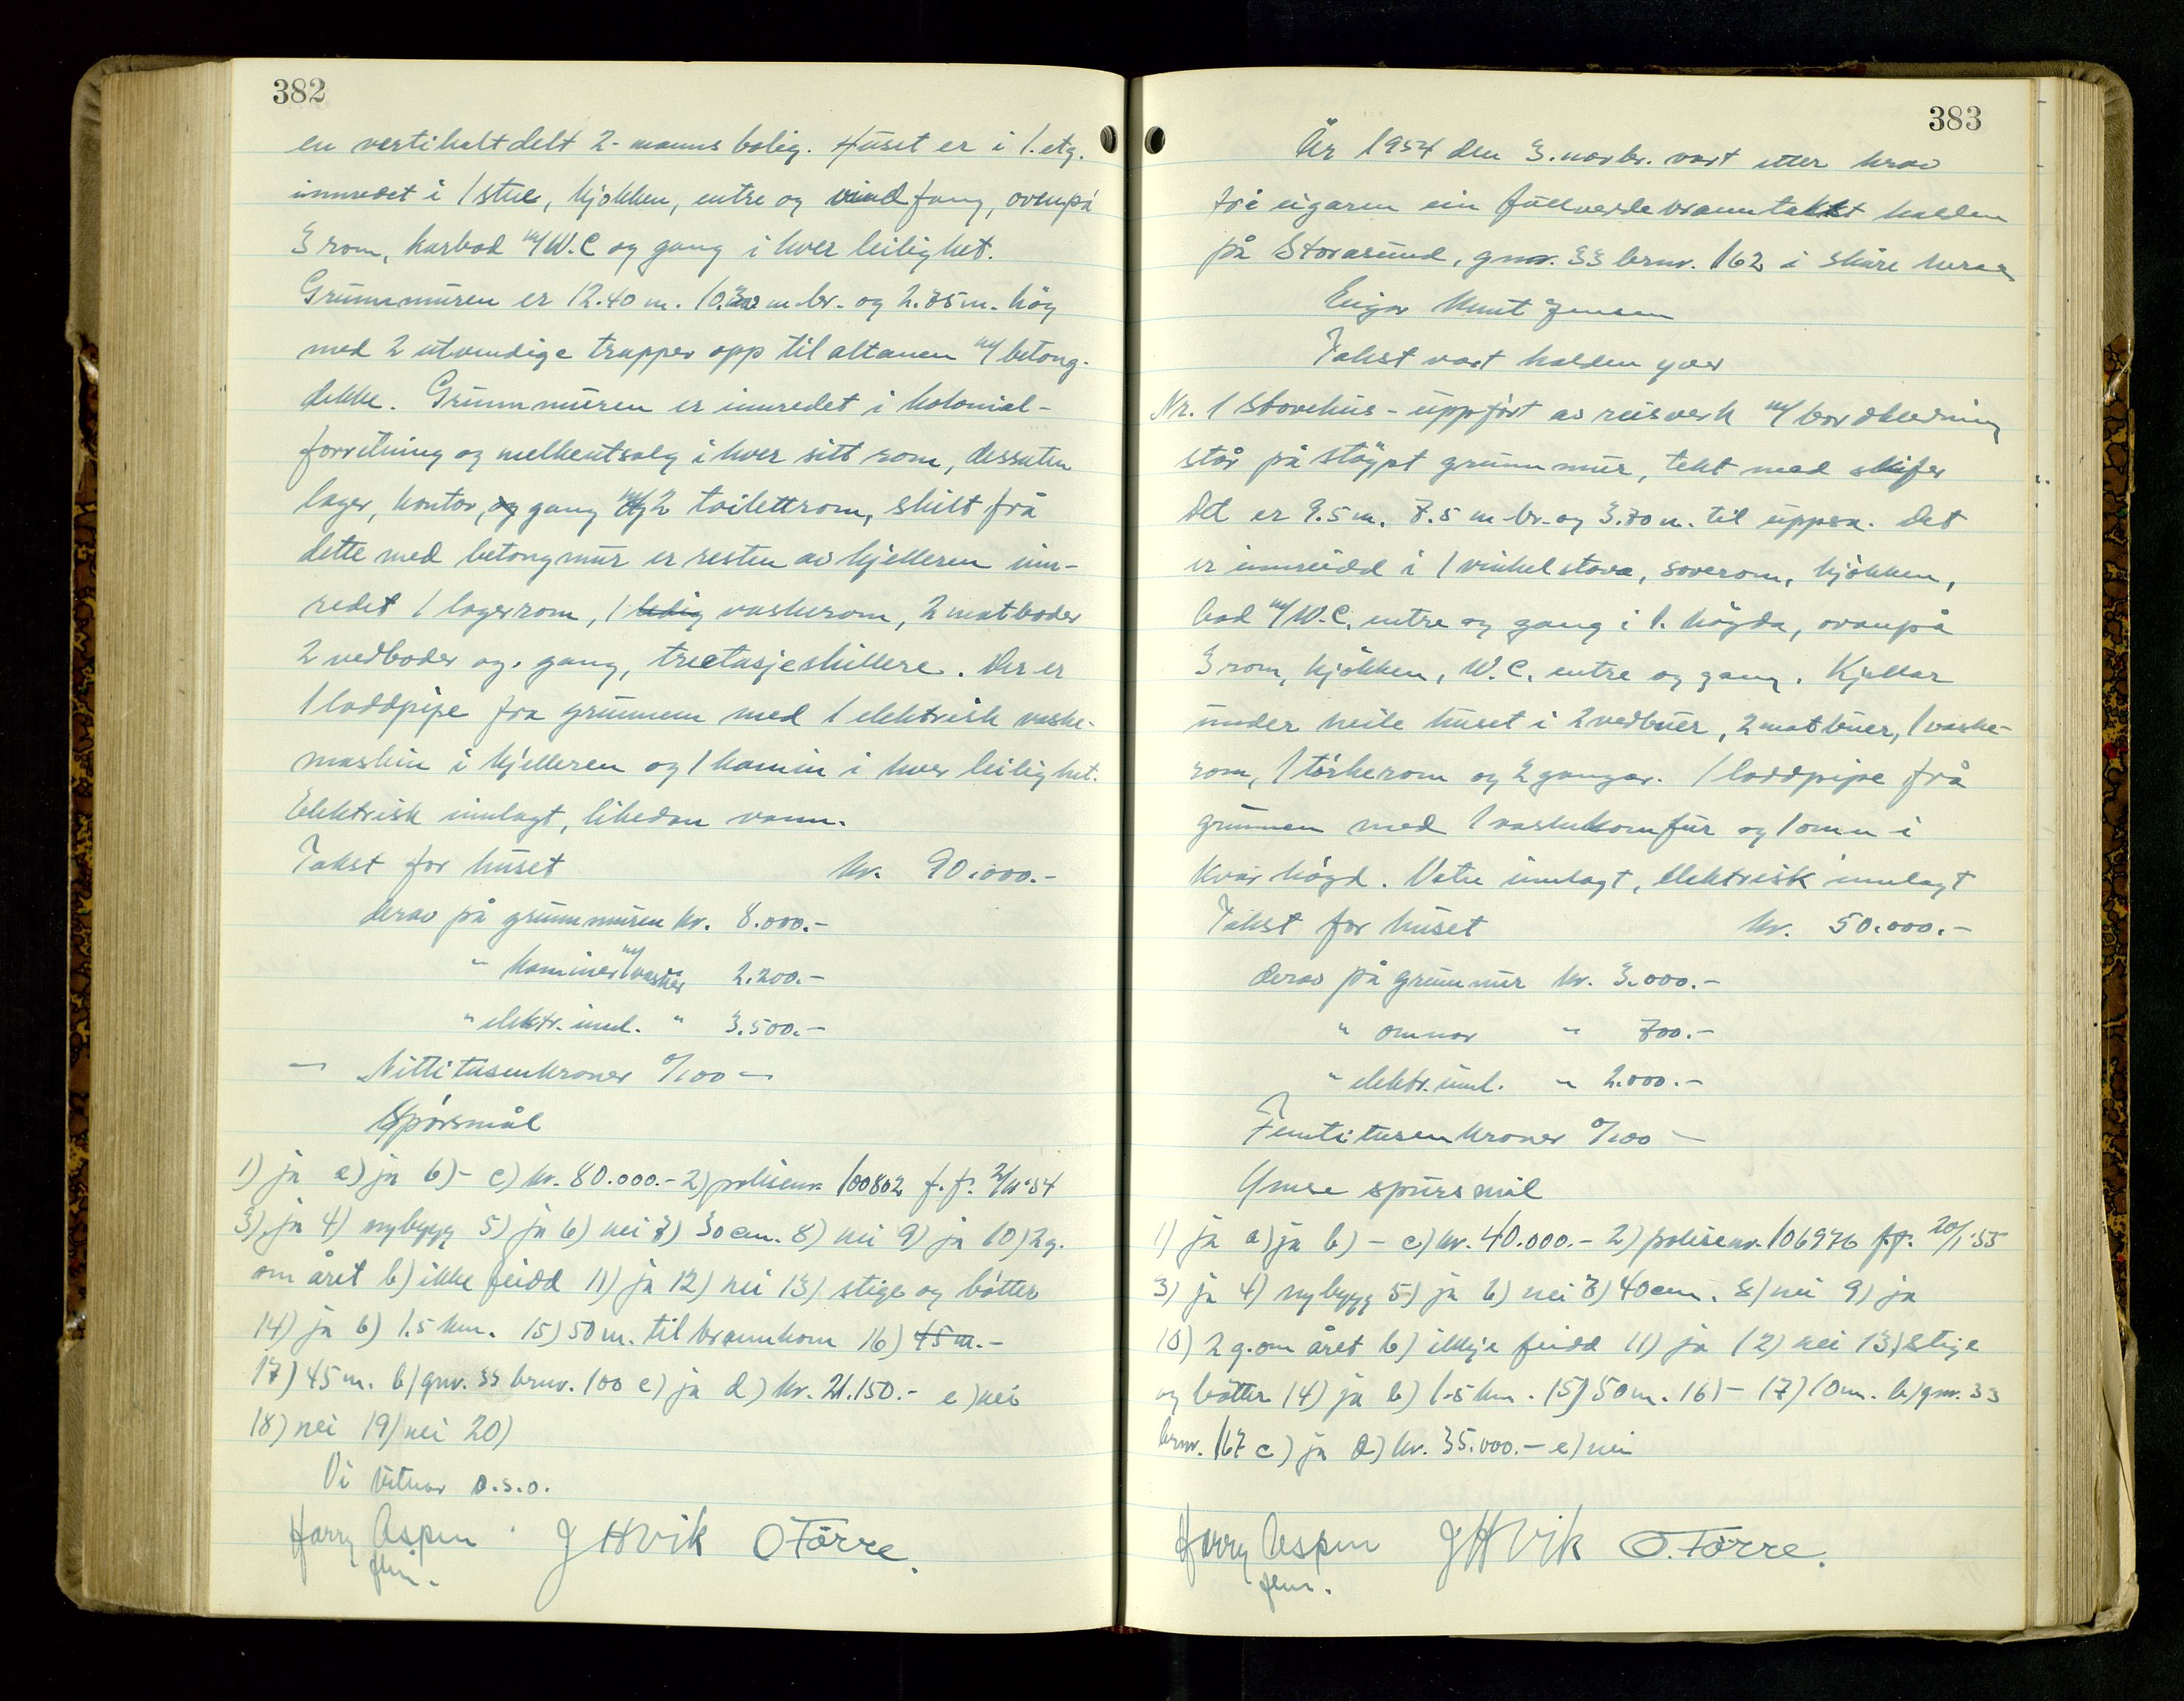 382
en vertikalt delt 2-manns bolig. Huset er i 1. etg.
innredet i 1 stue, kjøkken, entre og vindfang, ovenpå
3 rom, karbad m/W.C og gang i hver leilighet.
Grunnmuren er 12.40 m. 10.30 m br. og 2.75 m. høg
med 2 utvendige trapper opp til altanen m/betong-
dekke. Grunnmuren er innredet i kolonial-
forretning og melkeutsalg i hver sitt rom, dessuten
lager, kontor, og gang m/2 toilettrom, skilt frå
dette med betongmur er resten av kjelleren inn-
redet 1 lagerrom, 1 ledig vaskerom, 2 matboder
2 vedboder og gang, treetasjeskillere. Der er
1 loddpipe fra grunnen med 1 elektrisk vaske-
maskin i kjelleren og 1 kamin i hver leilighet.
Elektrisk innlagt, likedan vann.
Takst for huset kr. 90.000.-
derav på grunnmuren kr. 8.000.-
" kaminer m/vasker 2.200.-
" elektr. innl. " 3.500.-
— Nittitusenkroner 0/100 —
Spørsmål
1) ja a) ja b) - c) kr. 80.000.- 2) polisenr. 100802 f.f.
3) ja 4) nybygg 5) ja 6) nei 7) 30 cm. 8) nei 9) ja 10) 2 g.
om året b) ikke feidd 11) ja 12) nei 13) stige og bøtter
14) ja b) 1.5 km. 15) 50 m. til brannkom 16) 45 m. -
17) 45 m. b) gnr. 33 brnr. 100 c) ja d) kr. 21.150.- e) nei
18) nei 19) nei 20)
Vi vitnar o.s.o.
Harry Aspen J H Vik O Førre.
383
År 1954 den 3. novbr. vart etter krav
frå eigaren ein fullverde branntakst halden
på Storasund, gnr. 33 brnr. 162 i Skåre herad
Eigar Knut Jensen
Takst vart halden yver
Nr. 1 Stovehus - uppført av reisverk m/bordkledning
står på støypt grunnmur, tekt med skifer
Det er 9.5 m. 7.5 m br. og 3.70 m. til uppsa. Det
er innreidd i 1 vinkelstova, soverom, kjøkken,
bad m/W.C. entre og gang i 1. høgda, ovanpå
3 rom, kjøkken, W.C. entre og gang. Kjellar
under heile huset i 2 vedbuer, 2 matbuer, 1 vaske-
rom, 1 tørkerom og 2 gangar. 1 loddpipe frå
grunnen med 1 vaskekomfur og 1 omn i
kvar høgd. Vatn innlagt, elektrisk innlagt
Takst for huset kr. 50.000.-
derav på grunnmur kr. 3.000.-
" omnar " 700.-
" elektr. innl. " 2.000.-
Femtitusenkroner 0/100 —
Ymse spursmål
1) ja a) ja b) - c) kr. 40.000.- 2) polisenr. 106976 f.f. 20/1-55
3) ja 4) nybygg 5) ja 6) nei 7) 40 cm. 8) nei 9) ja
10) 2 g. om året b) ikkje feidd 11) ja 12) nei 13) stige
og bøtter 14) ja b) 1.5 km. 15) 50 m. 16) - 17) 10 m. b) gnr. 33
brnr. 167 c) ja d) kr. 35.000.- e) nei
Harry Aspen J H Vik O. Førre.